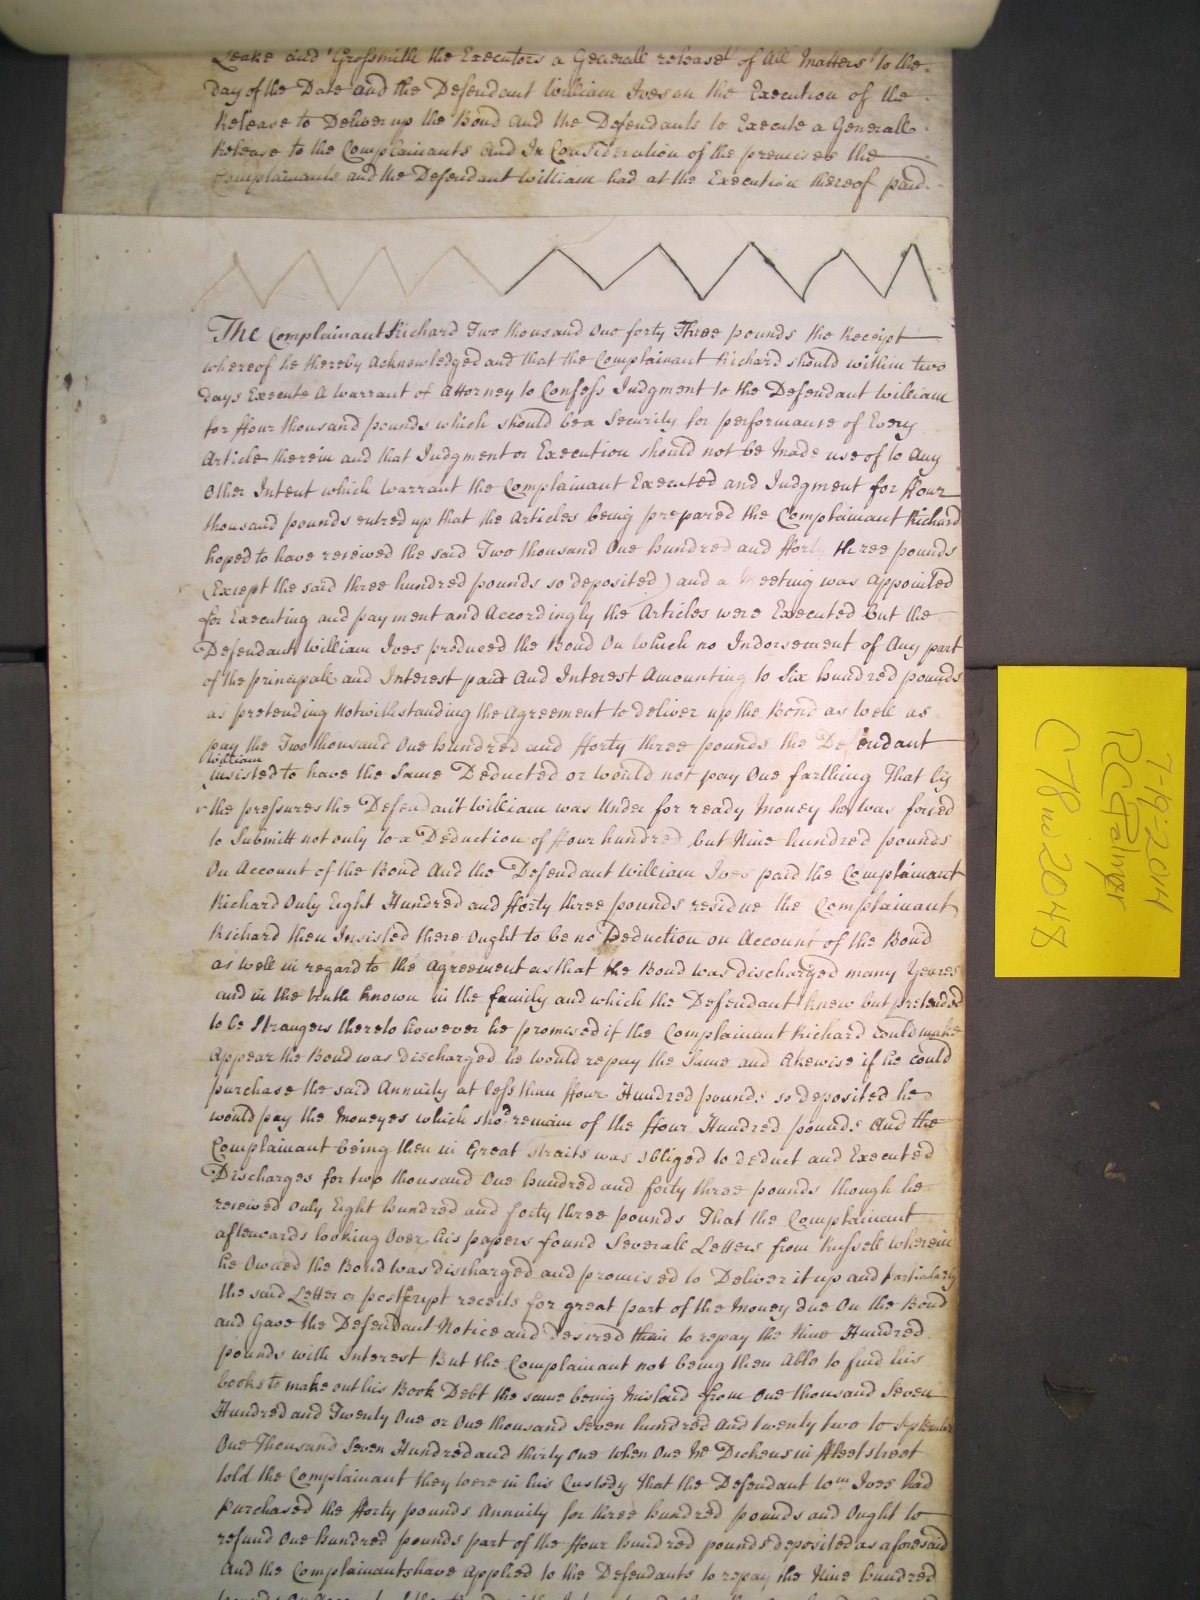 Leake and Grossmith the Executors a Generall release of All Matters to the
day of the Date and the Defendant William Ives on the Execution of the
Release to Deliver up the Bond and the Defendants to Execute a Generall
Release to the Complainants And In Consideration of the premises the
Complainants and the Defendant William had at the Execution thereof paid
The Complainant Richard Two thousand One forty Three pounds the Receipt
whereof he thereby Acknowledged and that the Complainant Richard should within two
days Execute A Warrant of Attorney to Confess Judgment to the Defendant William
for ffour thousand pounds which should be a Security for performance of Every
Article therein and that Judgment or Execution should not be Made use of to Any
Other Intent which Warrant the Complainant Executed and Judgment for ffour
thousand pounds entred up that the Articles being prepared the Complainant Richard
hoped to have received the said Two thousand One hundred and fforty three pounds
(Except the said three hundred pounds so deposited) and a Meeting was Appointed
for Executing and payment and Accordingly the Articles were Executed but the
Defendant William Ives produced the Bond On which no Indorsement of Any part
of the principall and Interest paid And Interest Amounting to Six hundred pounds
as pretending notwithstanding the Agreement to deliver up the Bond as well as
pay the Two thousand One hundred and fforty three pounds the Defendant
William
insisted to have the same Deducted or would not pay One farthing That by
the pressures the Defendant William was Under for ready Money he was forced
to Submitt not only to a Deduction of ffour hundred but Nine hundred pounds
On Account of the Bond And the Defendant William Ives paid the Complainant
Richard Only Eight Hundred and fforty three pounds residue the Complainant
Richard then Insisted there Ought to be no Deduction on Account of the Bond
as well in regard to the Agreement as that the Bond was discharged many Yeares
and in the truth known in the family and which the Defendant knew but pretended
to be Strangers thereto however he promised if the Complainant Richard could make
Appear the Bond was discharged he would repay the same and likewise if he could
purchase the said Annuity at less than ffour Hundred pounds so deposited he
would pay the Moneyes which sho.d remain of the ffour Hundred pounds And the
Complainant being then in Great straits was obliged to deduct and Executed
Discharges for two thousand One hundred and forty three pounds though he
received only Eight hundred and forty three pounds That the Complainant
afterwards looking Over his papers found Severall Letters from Russell wherein
he Owned the Bond was discharged and promised to Deliver it up and particularly
the said Letter or postscript receits for great part of the Money due On the Bond
and Gave the Defendant Notice and desired them to repay the Nine Hundred
pounds with Interest But the Complainant not being then Able to find his
books to make out his Book Debt the same being mislaid from One thousand Seven
Hundred and Twenty One or One thousand Seven hundred And twenty two to September
One Thousand Seven Hundred and thirty One when One Mr Dickens in ffleetstreet
told the Complainant they were in his Custody That the Defendant Wm Ives had
purchased the fforty pounds Annuity for three hundred pounds and Ought to
refund One hundred pounds part of the ffour hundred pounds deposited as aforesaid
And the Complainants have Applied to the Defendants to repay the Nine hundred
7-10-2014
C 78 no 2048